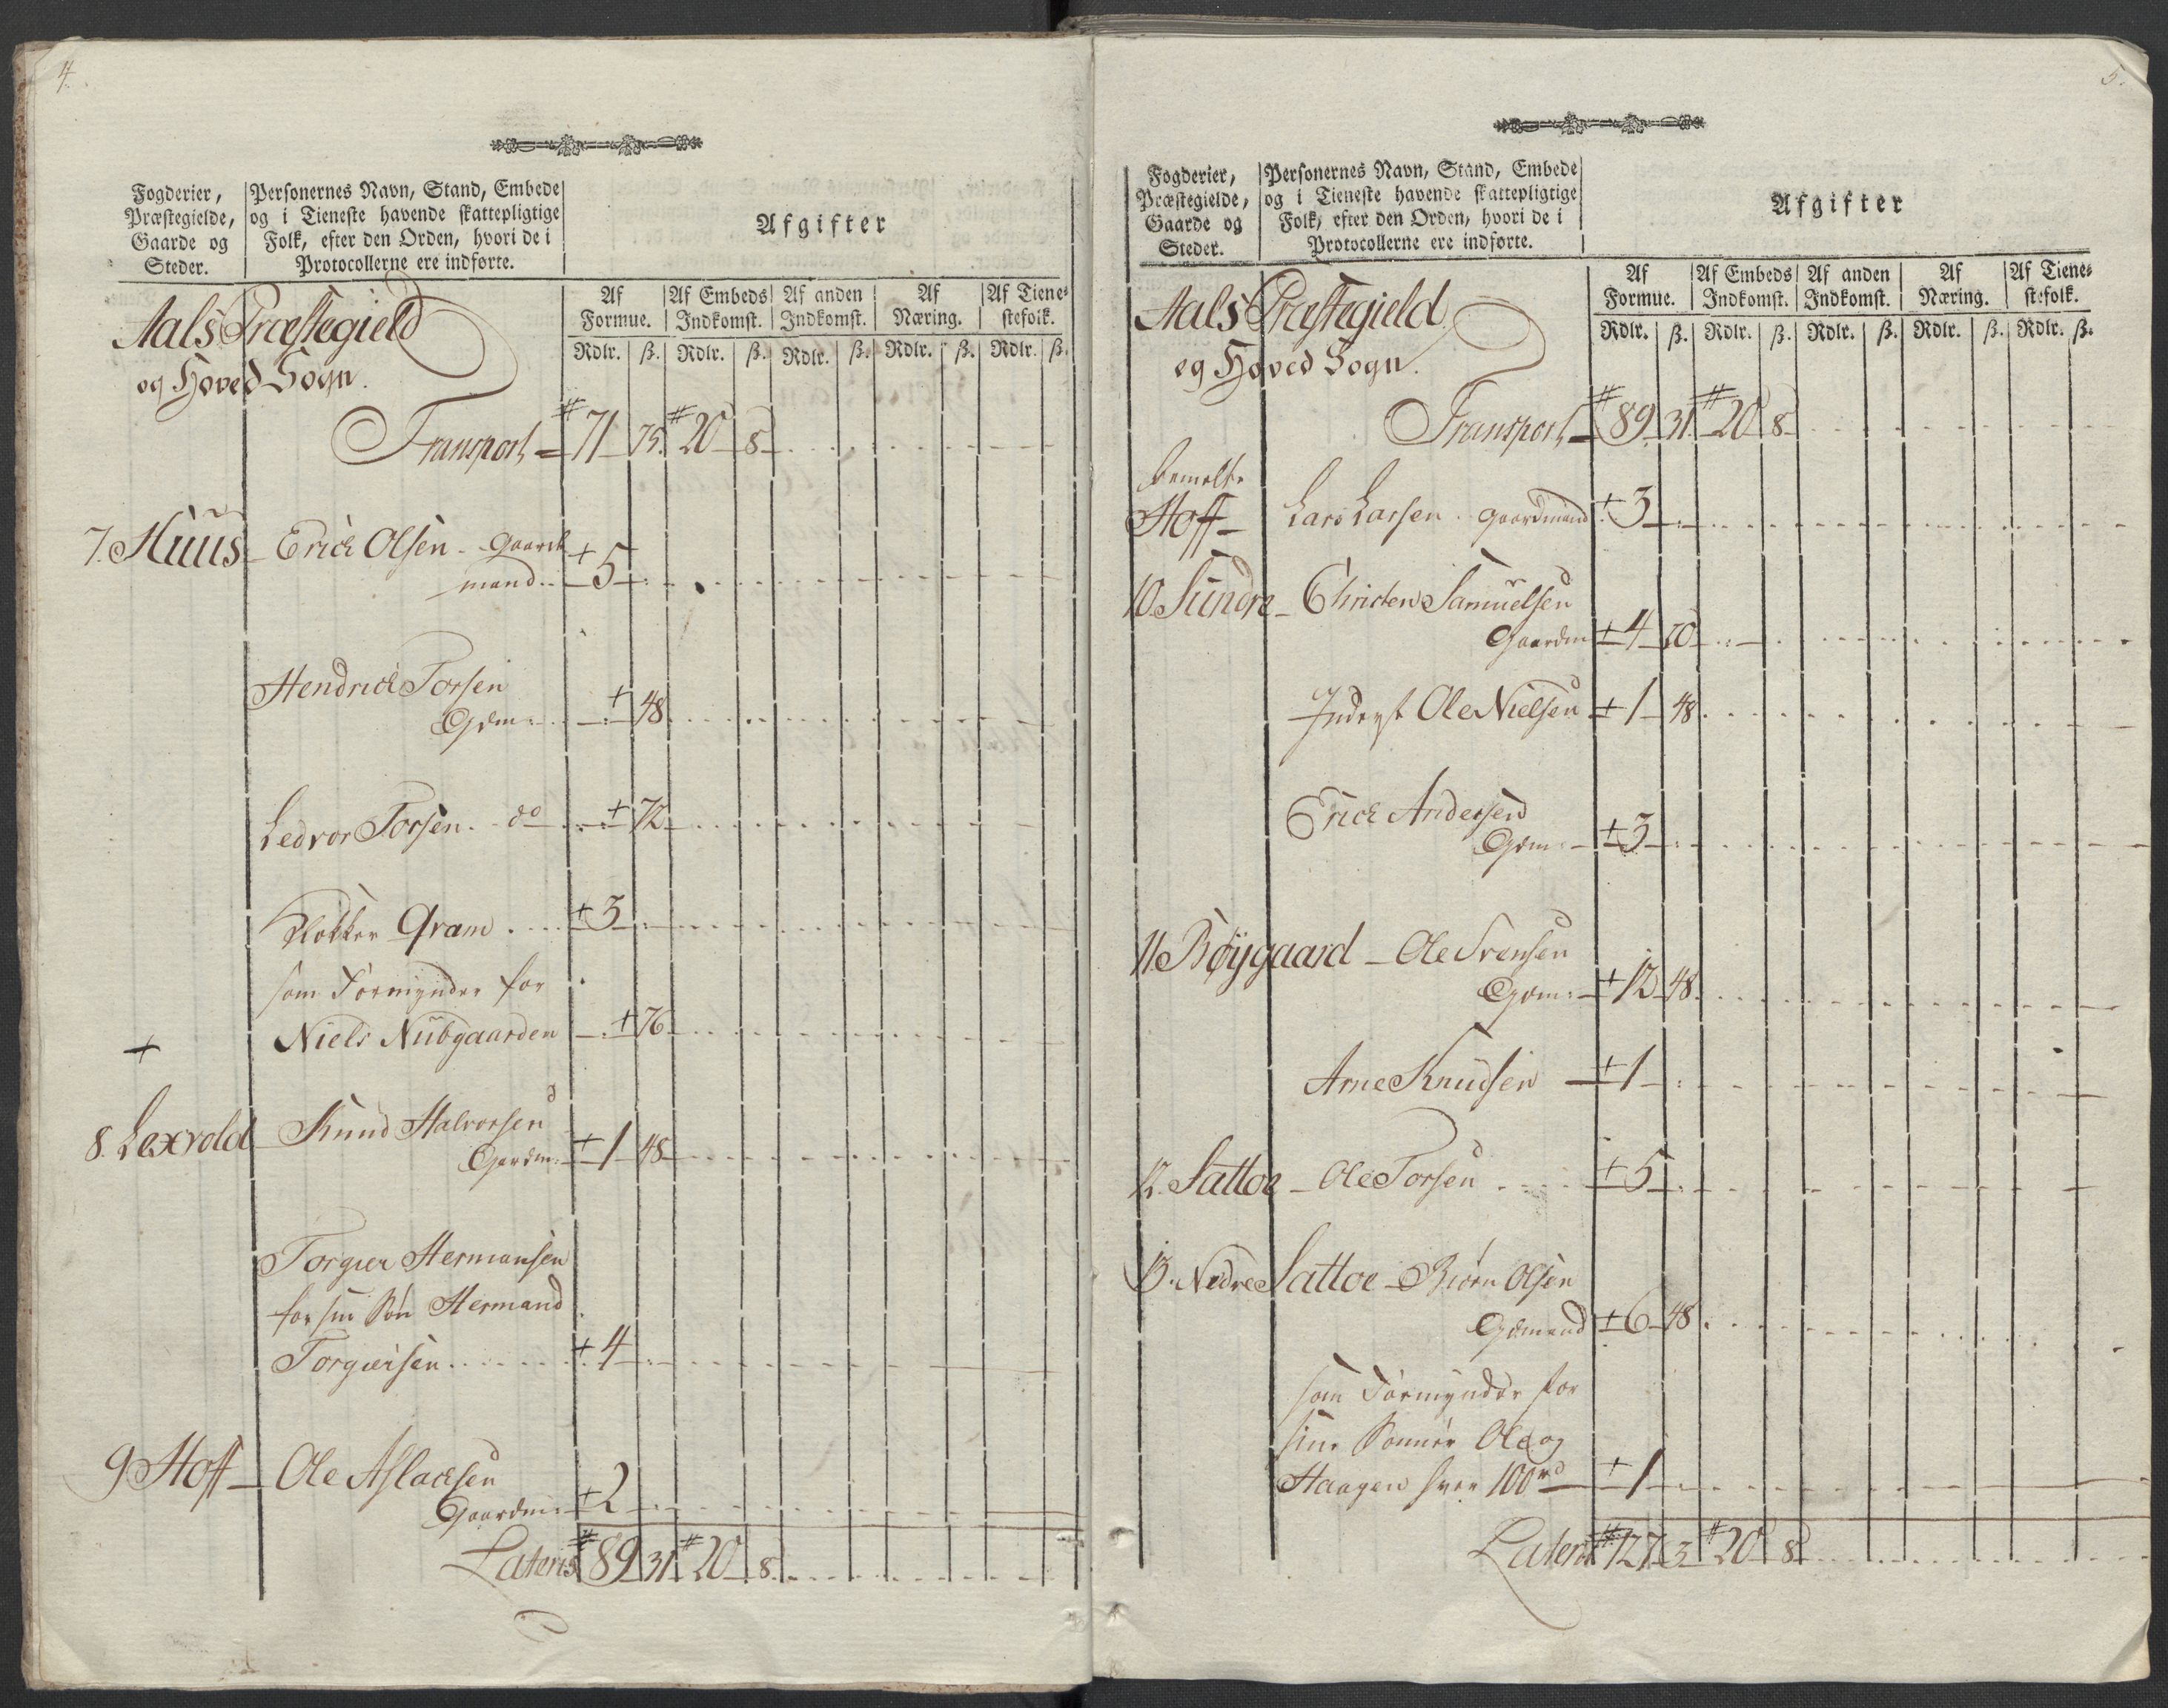 4.
Fogderier, Præstegielde, Gaarde og Steder.
Personernes Navn, Stand, Embede og i Tieneste havende skattepligtige Folk, efter den Orden, hvori de i Protocollerne ere indførte.
Afgifter
Af Formue. Af Embeds Indkomst. Af anden Indkomst. Af Næring. Af Tienestefolk.
Rdlr. ß. Rdlr. ß. Rdlr. ß. Rdlr. ß. Rdlr. ß.
Aals Præstegield
og Hoved Sogn.
Transport = # 71 75. # 20 8
7. Huus - Erick Olsen - Gaard
mand. + 5
Hendrick Torsen
Gdm: + 48
Ledvor Torsen. do + 72
Klokker Gram + 3
som Formynder for
+ Niels Nubgaarden + 76
8. Lexvold - Knud Halvorsen
Gaardm: + 1 48
Torgier Hermansen
for sin Søn Hermand
Torgiersen + 4
9 Hoff - Ole Aslacksen
Gaardm: + 2
Lateris # 89 31 # 20 8
5.
Fogderier, Præstegielde, Gaarde og Steder.
Personernes Navn, Stand, Embede og i Tieneste havende skattepligtige Folk, efter den Orden, hvori de i Protocollerne ere indførte.
Afgifter
Af Formue. Af Embeds Indkomst. Af anden Indkomst. Af Næring. Af Tienestefolk.
Rdlr. ß. Rdlr. ß. Rdlr. ß. Rdlr. ß. Rdlr. ß.
Aals Præstegield
og Hoved Sogn.
Transport = # 89 31 # 20 8
bemelte
Hoff - Lars Larsen Gaardmand + 3
10. Sundre - Christen Samuelsen
Gaardm + 4 20
Inderst Ole Nielsen + 1 48
Erick Andersen
Gdm: + 3
11. Bøygaard - Ole Svensen
Gdm: + 12 48
Arne Knudsen + 1
12. Sattoe - Ole Torsen + 5
13. Nedre Sattoe - Biørn Olsen
Gdmand + 6 48
som Formynder for
sine Sønner Ole og
Haagen hver 100 rd + 1
Lateris # 127 3 # 20 8